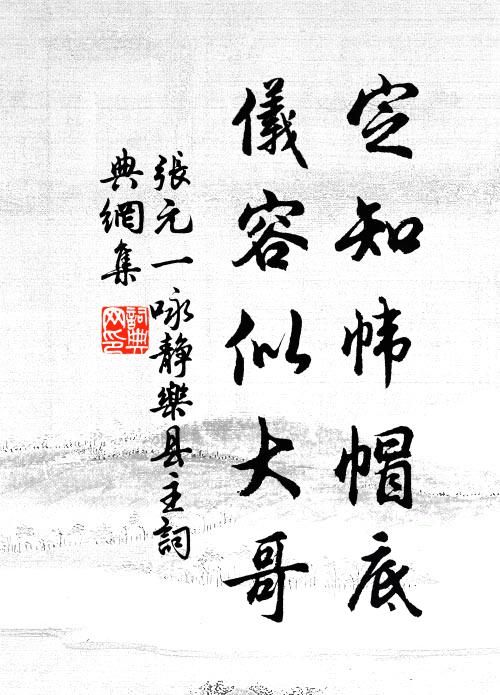 定知帏帽底
儀容似大哥
張元一咏静樂县主詞
典網集
詞典网印